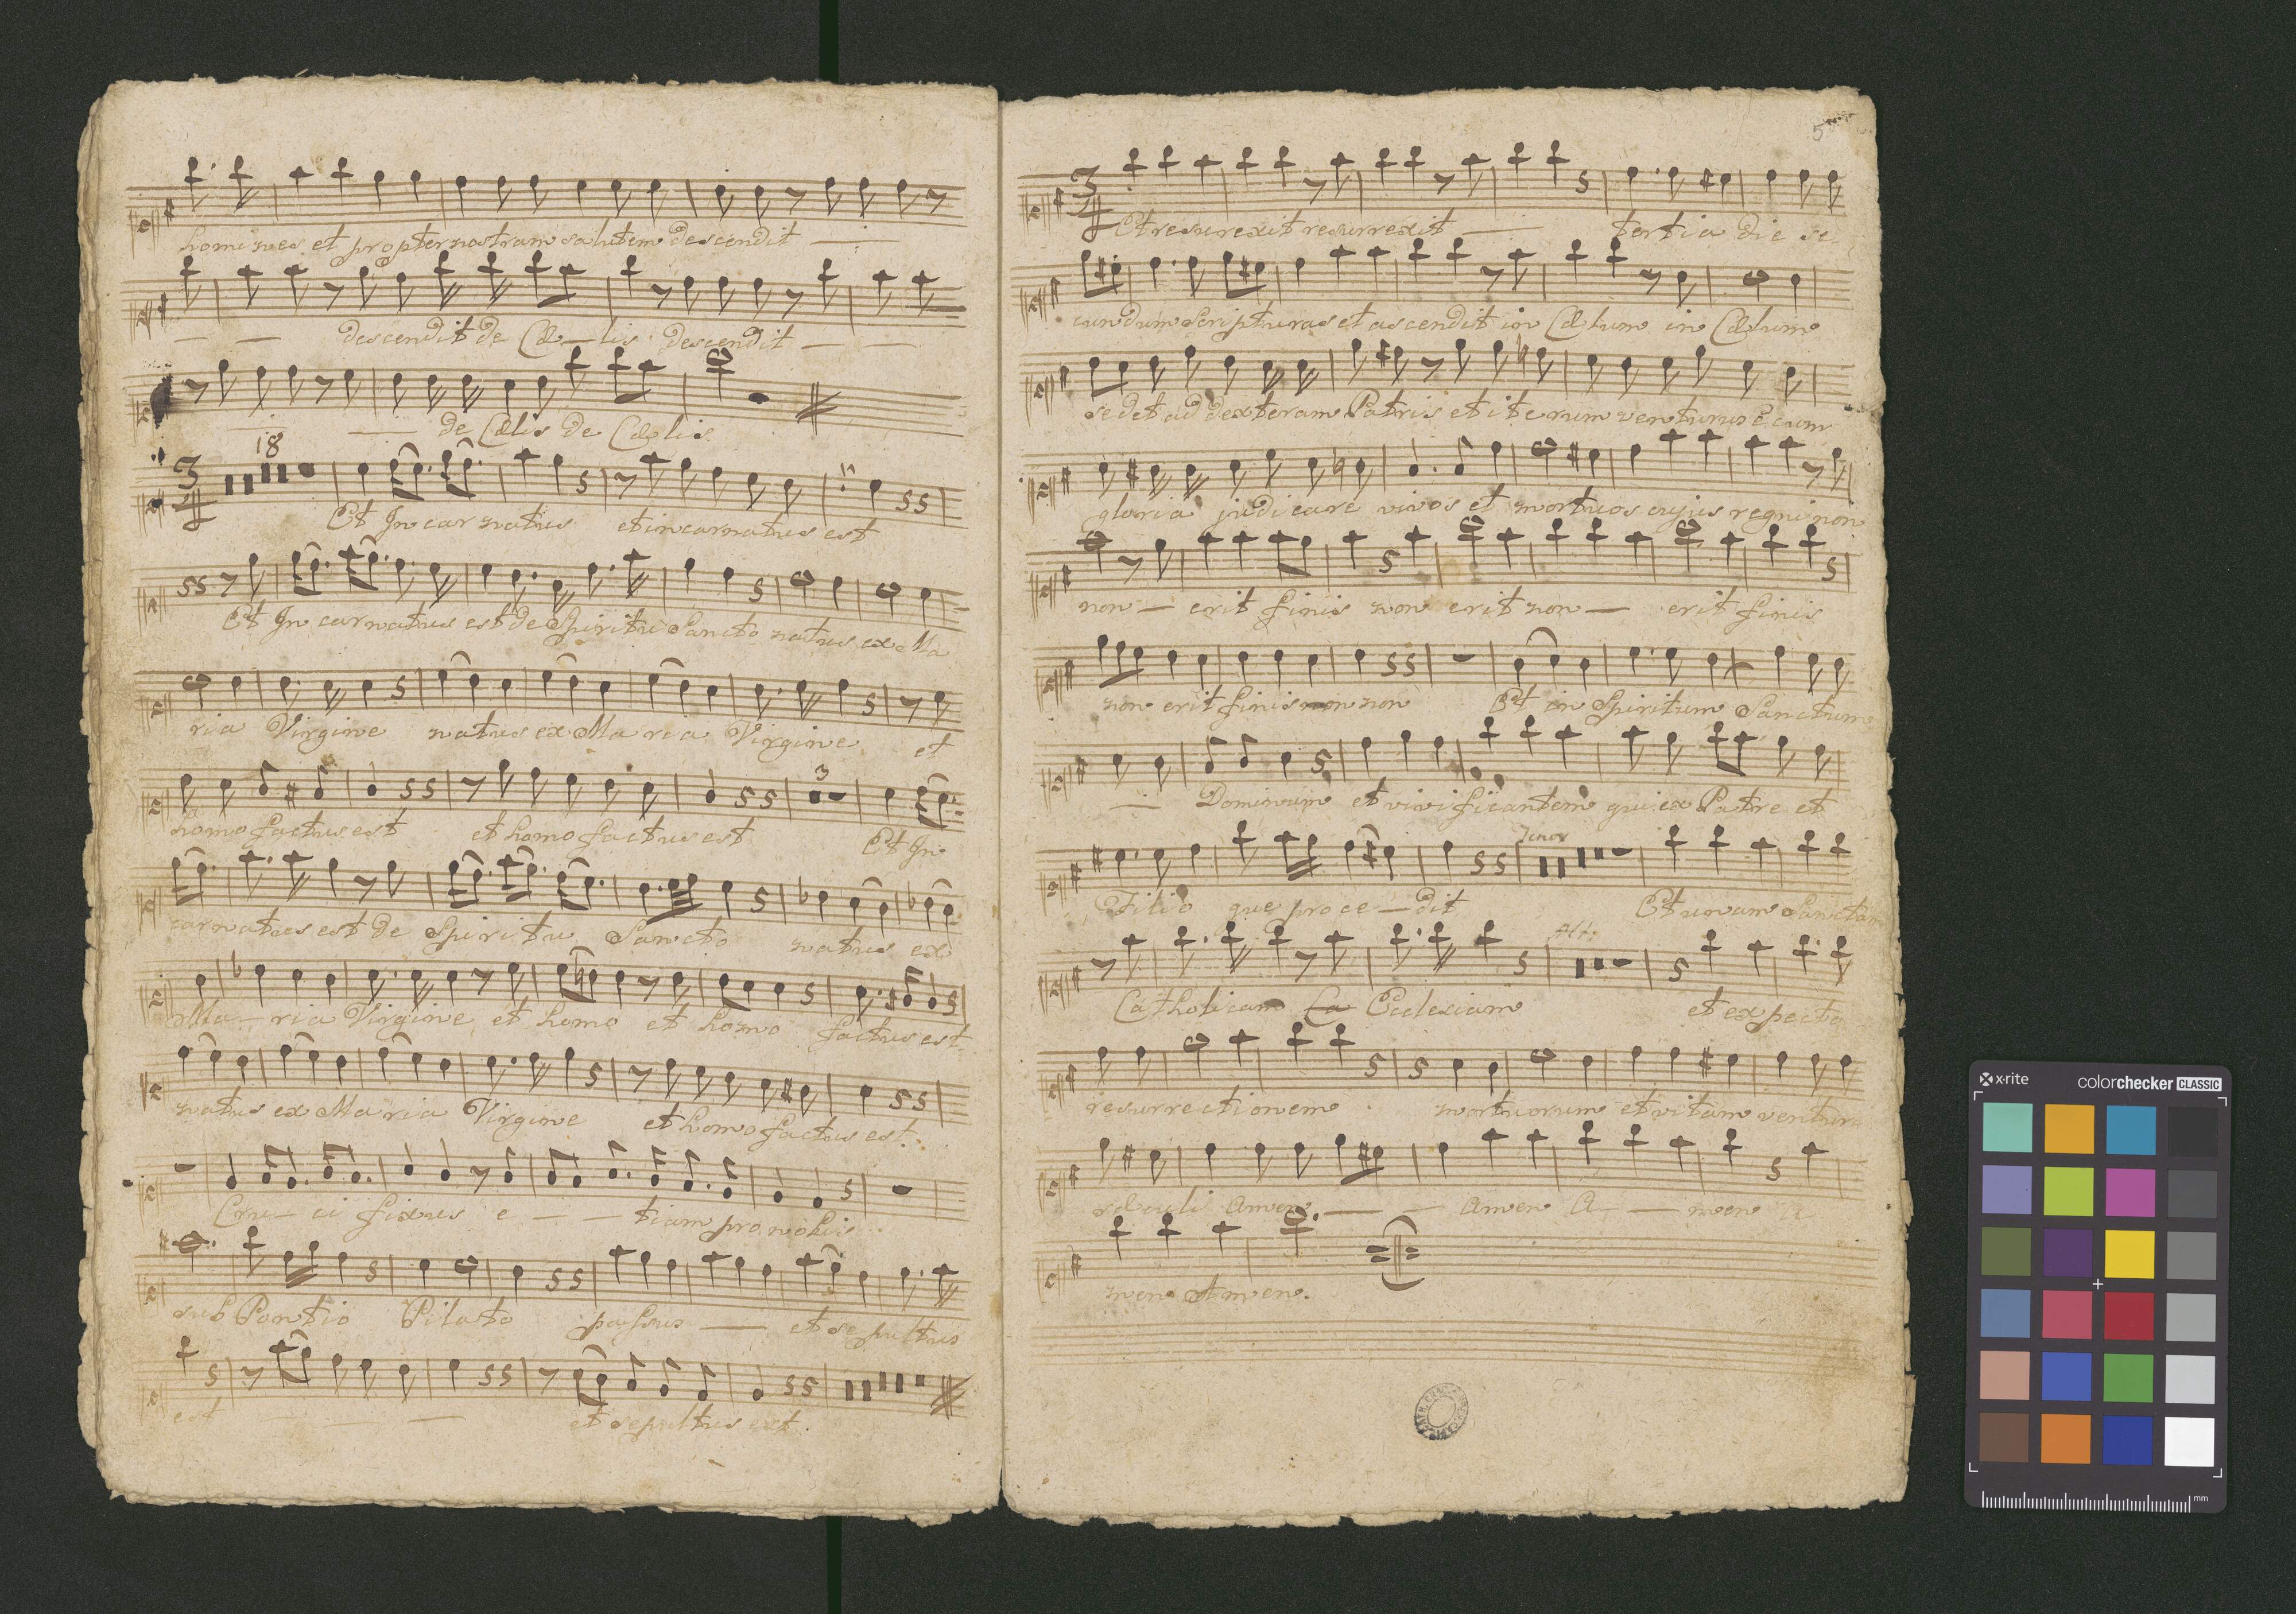 homines et propter nostram salutem descendit
descendit de Cæ—lis descendit
de Cælis de Cælis
18
3
Et Incarnatus et incarnatus est
Et Incarnatus est de Spiritu Sancto natus ex Ma
ria Virgine natus ex Maria Virgine et
3
homo factus est et homo factus est Et In
carnatus est de Spiritu Sancto natus ex
Ma—ria Virgine et homo et homo factus est
natus ex Maria Virgine et homo factus est
Cru—ci fixus e — — tiam pro nobis
sub Pontio Pilato passus — et sepultus
est — — et sepultus est.
5
3
Et resurexit resurrexit — tertia die se
cundum Scripturas et ascendit in Cælum in Cælum
sedet ad dexteram Patris et iterum venturus e cum
gloria judicare vivos et mortuos cujus regni non
non — erit finis non erit non — erit finis
non erit finis non non Et in Spiritum Sanctum
— Dominum et vivificantem qui ex Patre et
Tenor
Filio que proce—dit Et unam Sanctam
Alto
Catholicam Ca Eclesiam et expecto
resurrectionem mortuorum et vitam venturi
sæculi Amen — — Amen A — men A
men Amen.
x-rite
colorchecker CLASSIC
mm